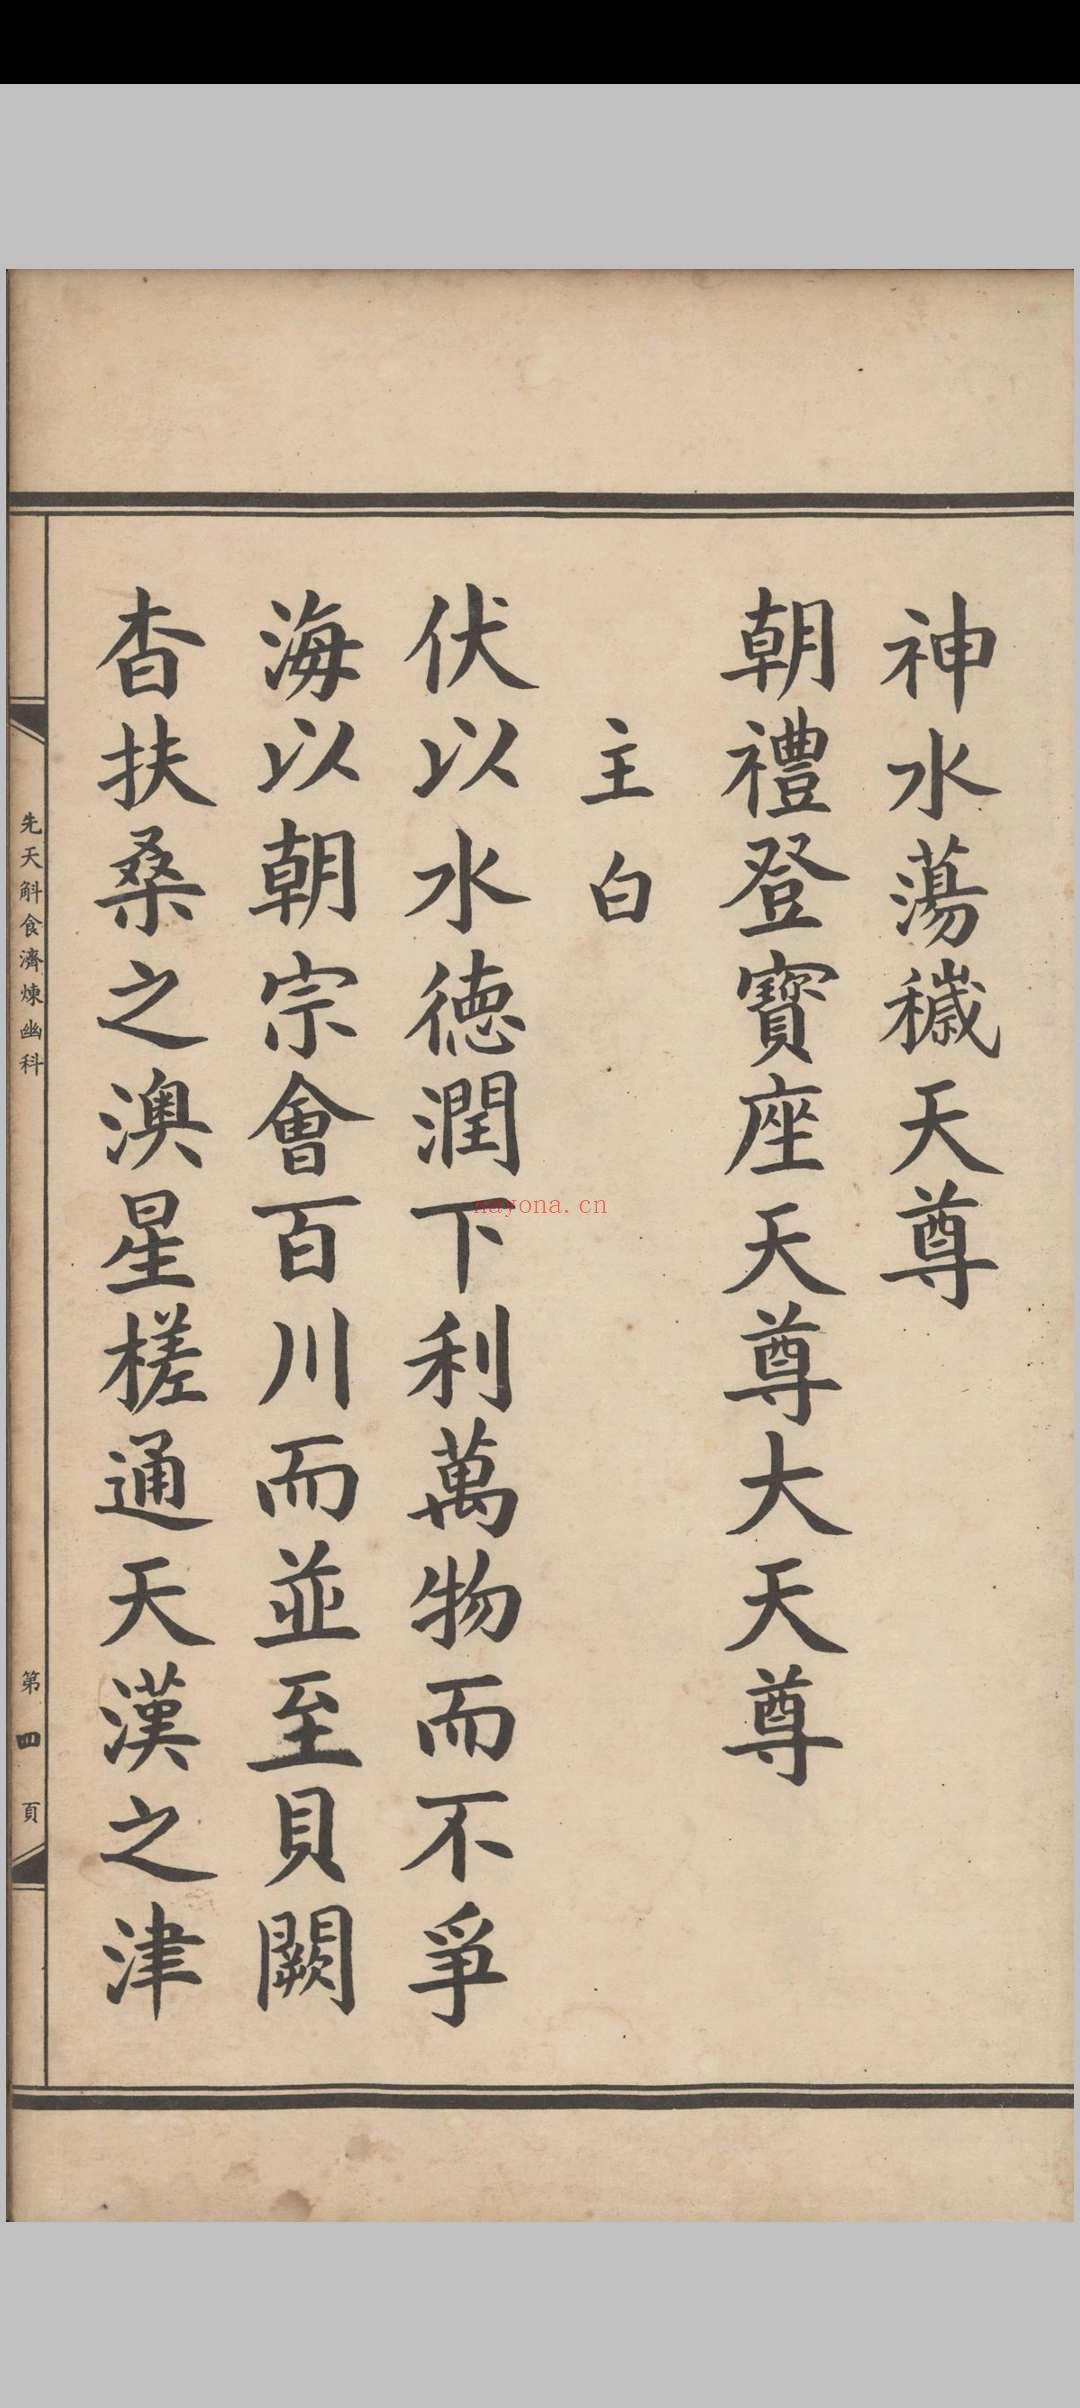 神水蕩穢天尊
朝禮登寶座天尊大天尊
主白
伏以水德潤下利萬物而不爭
海以朝宗會百川而並至貝闕
杳扶桑之澳星槎通天漢之津
先天斛食濟煉幽科
第四頁
nayona.cn